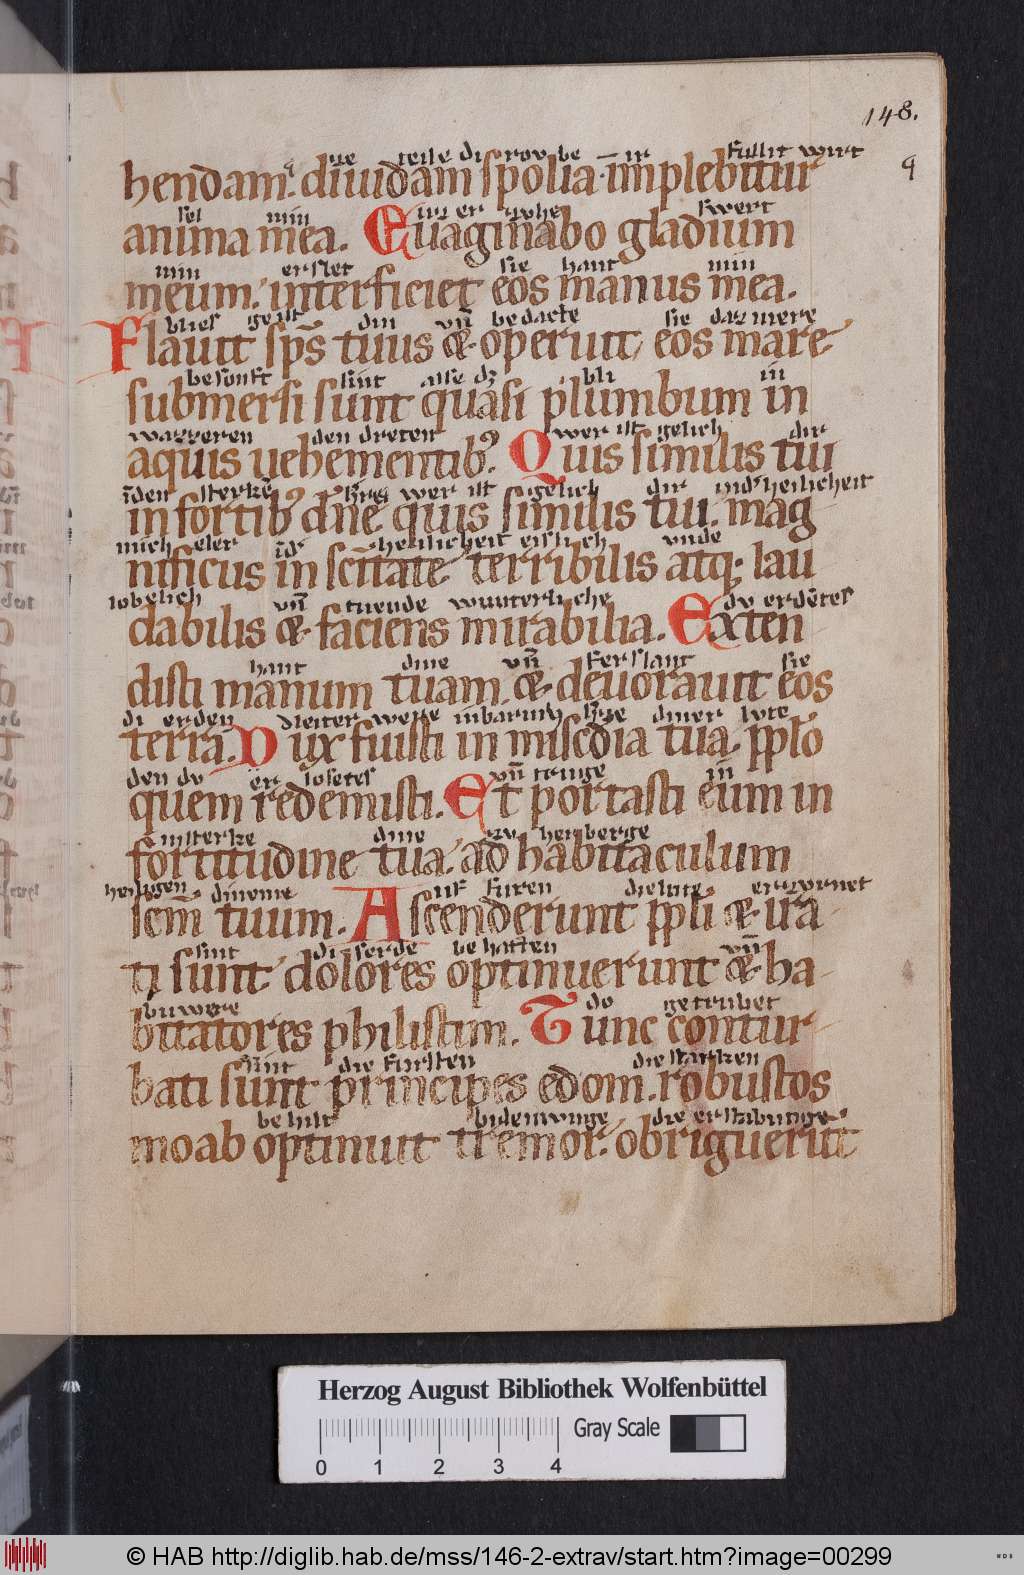 148.
9
ze teile di rov be ir fullit wirt
hendam. diuidam spolia. implebitur
sel min uz er zohe swert
anima mea. Euaginabo gladium
min erslet sie hant min
meum. interficiet eos manus mea.
blies geist din vn̄ bedacte sie daz mere
Flauit sps̄ tuus & operuit eos mare
besonft sint alse dz bli in
submersi sunt quasi plumbum in
wazzeren den dreten wer ist gelich dir
aquis uehementib; Quis similis tui
īden sterkē wer ist gelich dir heilicheit
in fortib; dn̄e quis similis tui. mag
mich eler īdˢ heilicheit eislich vnde
nificus in scītate terribilis atq; lau
lobelich vn̄ tuende wunterliche du erdētes
dabilis & faciens mirabilia. Exten
hant dine vn̄ ferslant sie
disti manum tuam. & deuorauit eos
di erden dleiter were inbarmh dˢ dmer lvte
terra. Dux fuisti in misc̄dia tua pplō
den du er losetes vn̄ trüge in
quem redemisti. Et portasti eum in
insterke dine zv herberge
fortitudine tua. ad habitaculum
heiligen dineme uf furen die lute erzvrnet
sc̄m tuum. Ascenderunt ppli & ira
sint di serde behatten vn̄
ti sunt dolores optinuerunt & ha
buwere do getrubet
bitatores philistim. Tunc contur
sint die fursten die starken
bati sunt principes edom. robustos
behilt bidenunge die erstabunge
moab optinuit tremor. obriguerūt
Herzog August Bibliothek Wolfenbüttel
Gray Scale
0 1 2 3 4
© HAB http://diglib.hab.de/mss/146-2-extrav/start.htm?image=00299